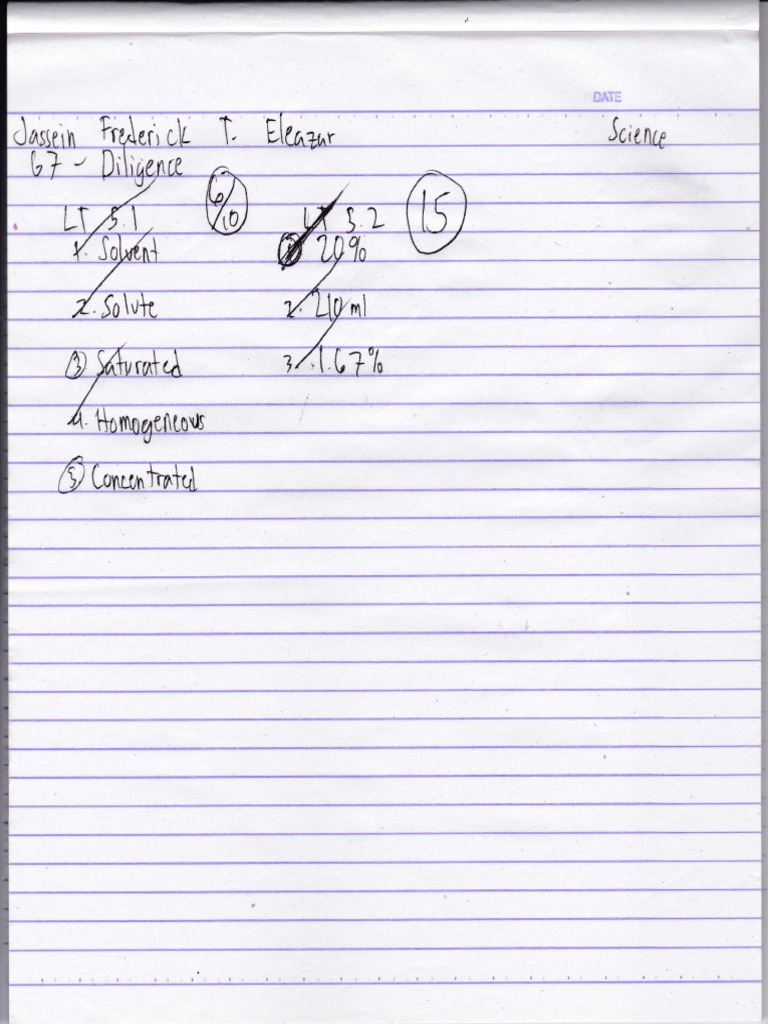 DATE
Jassein Frederick T. Eleazar Science
G7 - Diligence
LT 3.1 6/10 LT 3.2 15
1. Solvent 1 20%
2. Solute 2. 210 ml
3 Saturated 3. 1.67%
4. Homogeneous
5 Concentrated